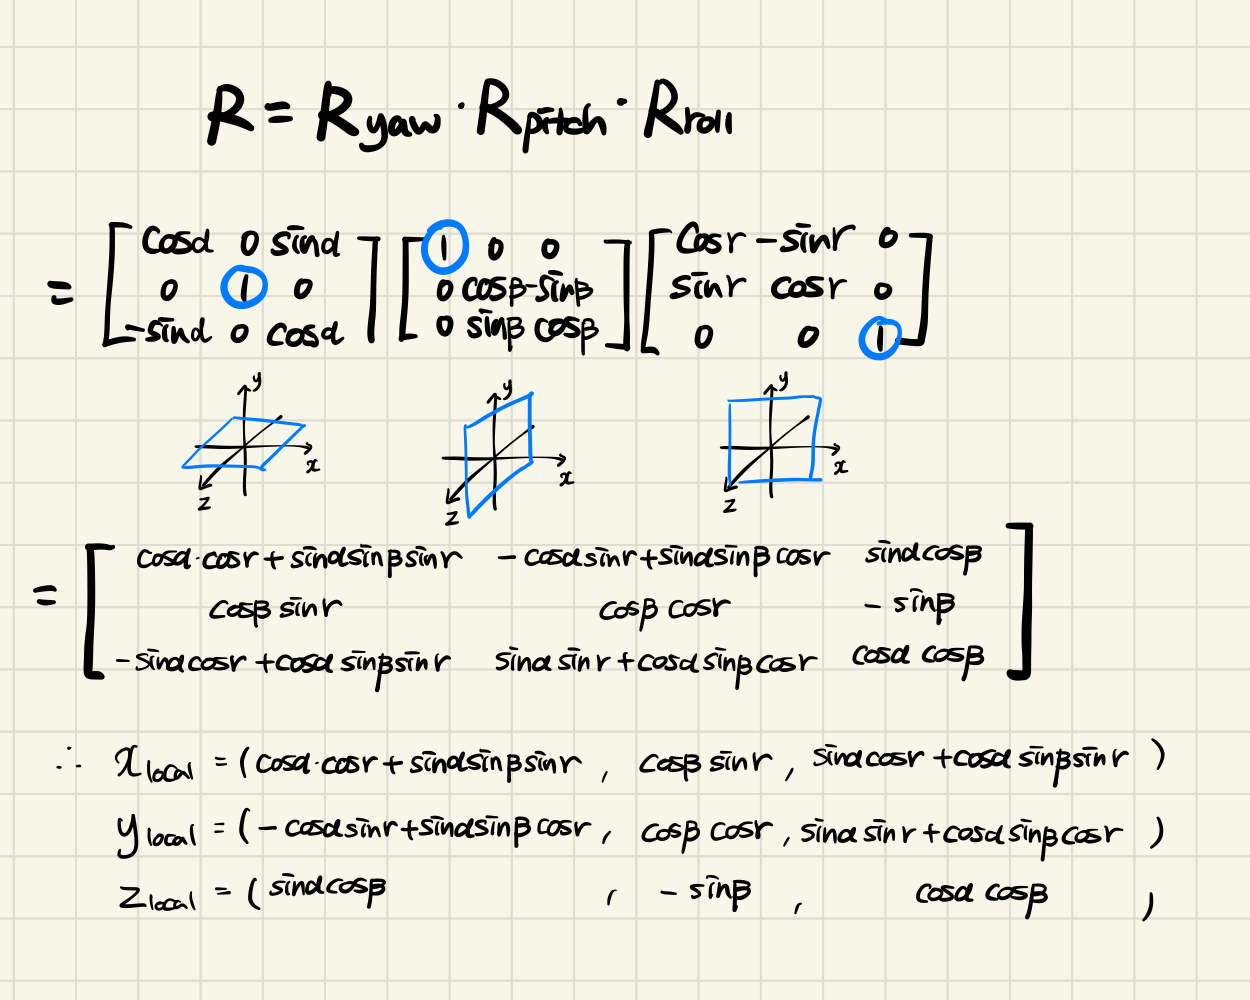 R = Ryaw · Rpitch · Rroll
= [ cosα 0 sinα ] [ 1 0 0 ] [ cosr -sinr 0 ]
0 1 0 0 cosβ -sinβ sinr cosr 0
-sinα 0 cosα 0 sinβ cosβ 0 0 1
y y y
x x x
z z z
= [ cosα·cosr + sinαsinβsinr - cosαsinr + sinαsinβcosr sinαcosβ ]
cosβ sinr cosβ cosr - sinβ
-sinαcosr + cosα sinβsinr sinα sinr + cosα sinβcosr cosα cosβ
∴ xlocal = ( cosα·cosr + sinαsinβsinr , cosβ sinr , sinαcosr + cosα sinβsinr )
ylocal = ( - cosαsinr + sinαsinβcosr , cosβ cosr , sinα sinr + cosα sinβcosr )
zlocal = ( sinαcosβ , - sinβ , cosα cosβ )